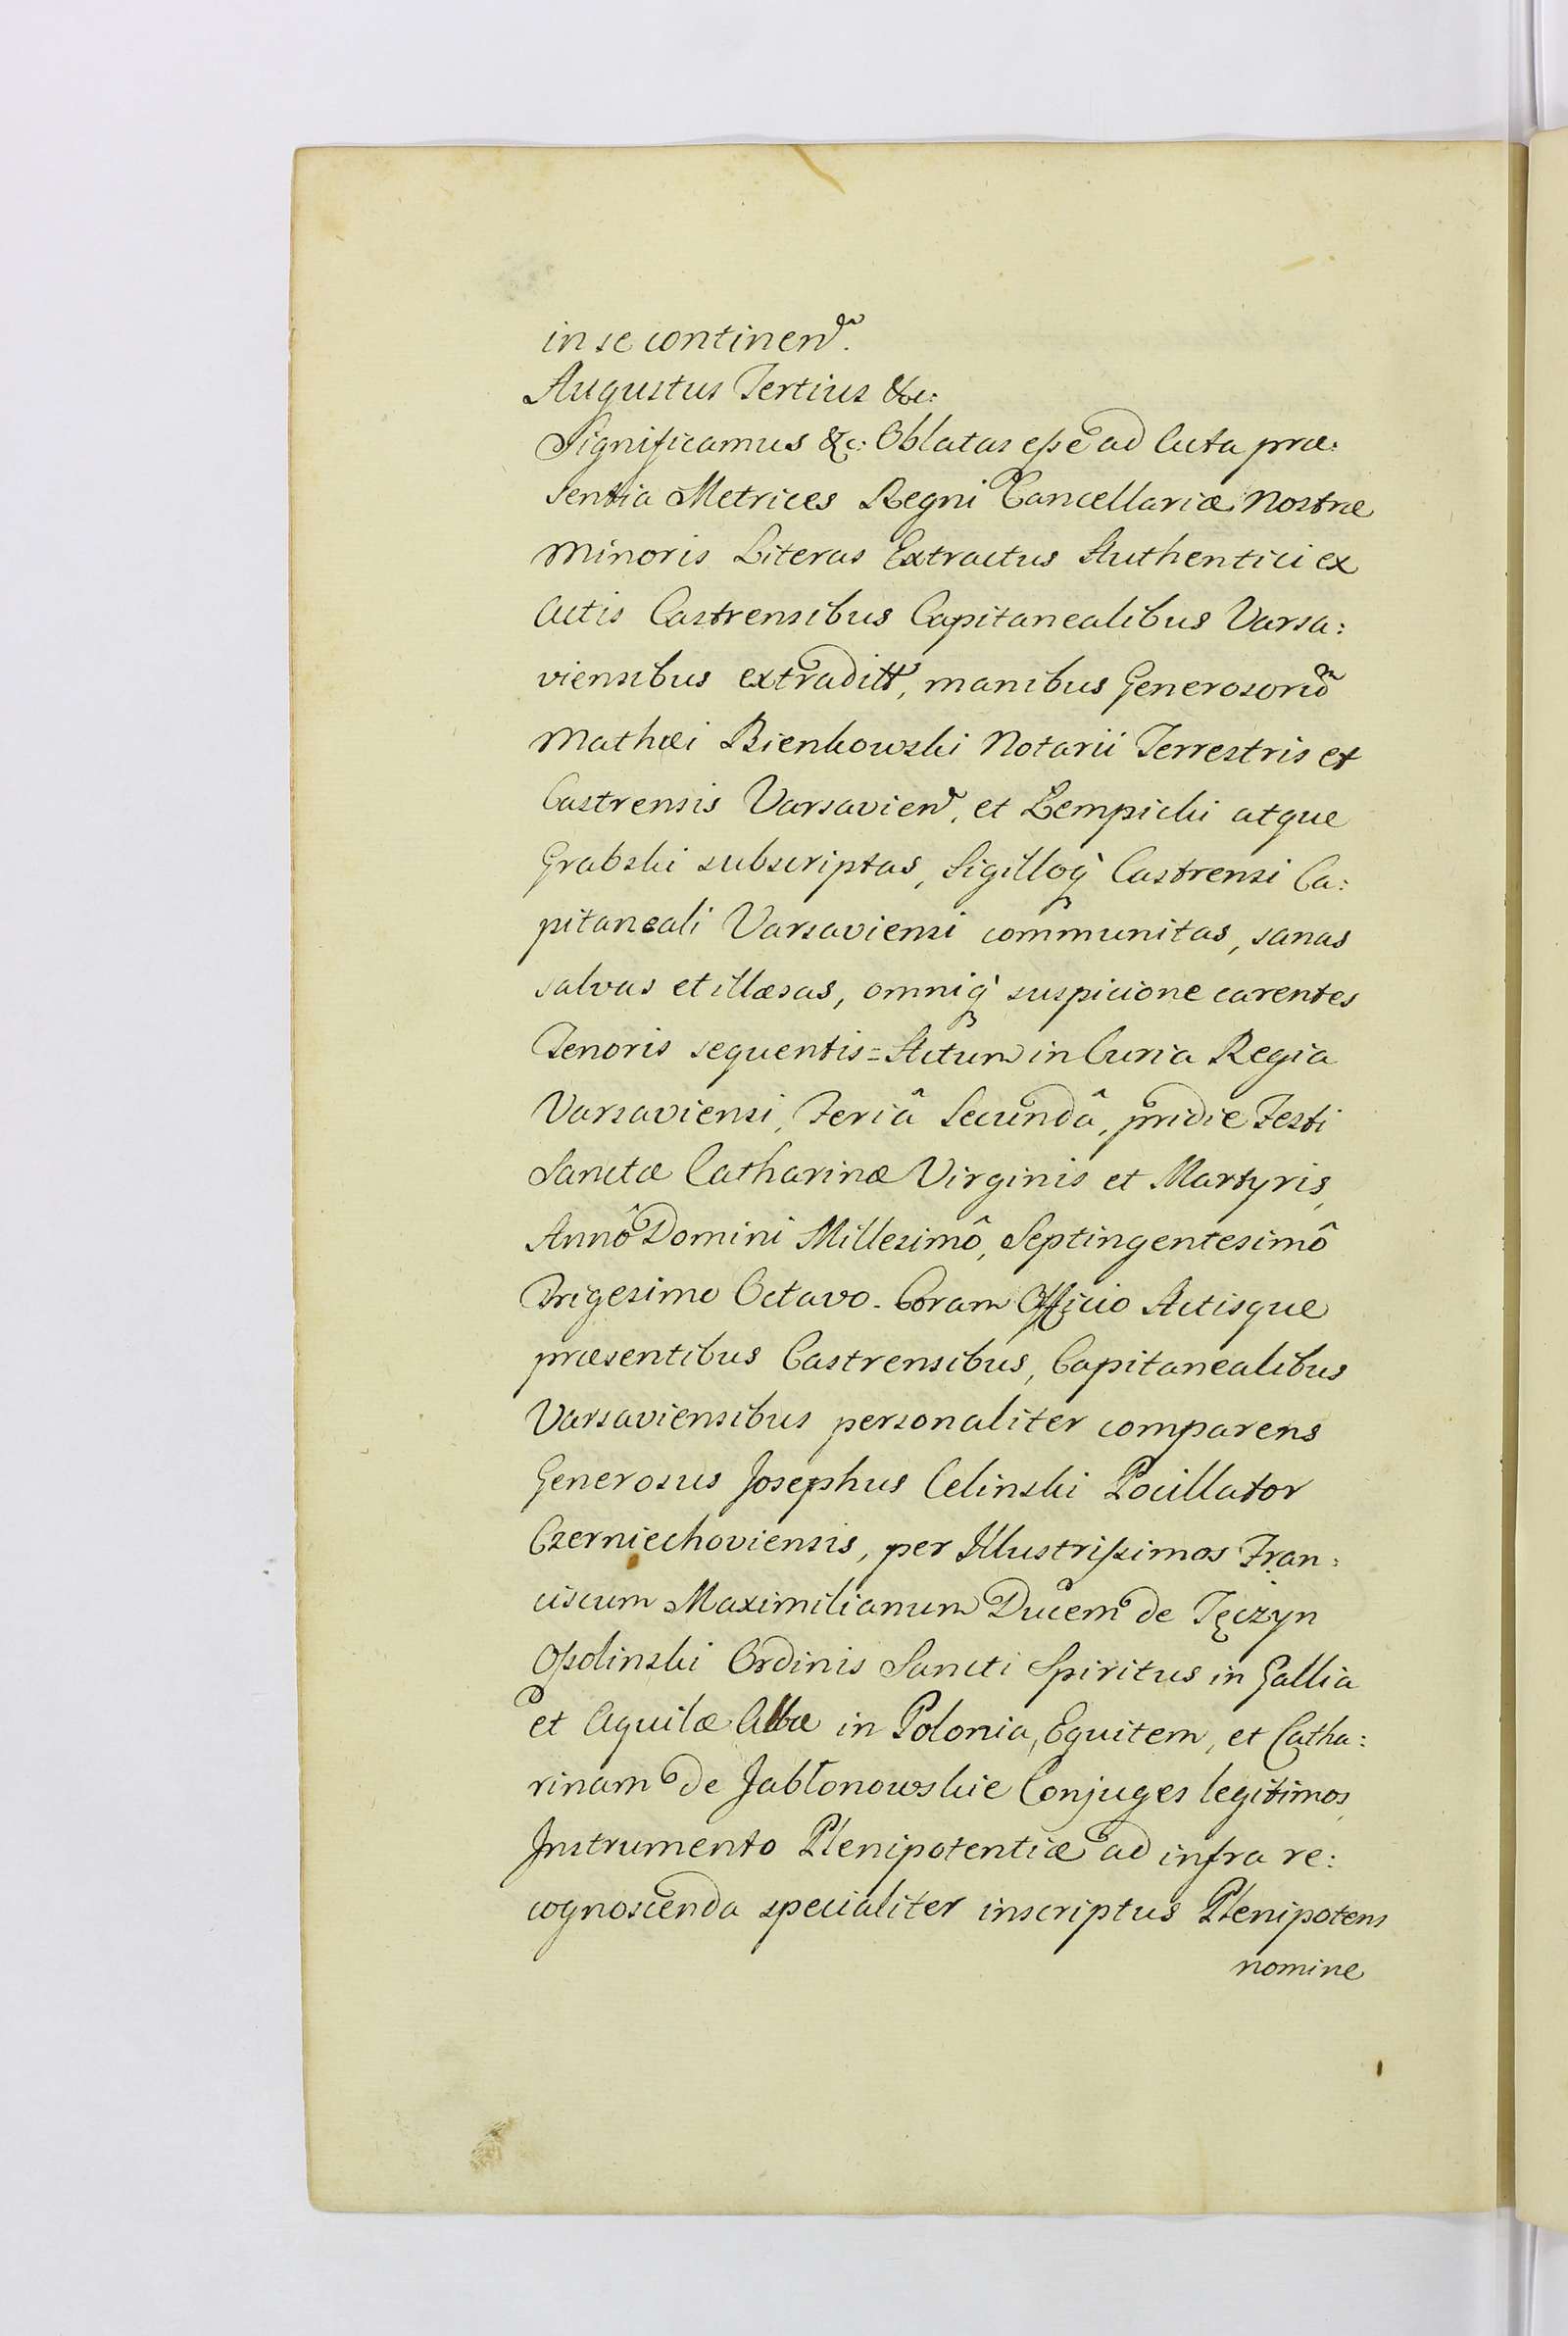 in se continen̄.
Augustus Tertius &c:
Significamus &c: Oblatas eſse ad Acta præ:
sentia Metrices Regni Cancellariæ Nostræ
Minoris Literas Extractus Authentici ex
Actis Castrensibus Capitanealibus Varsa:
viensibus extraditt, manibus Generosorum̃
Mathæi Bienkowski Notarii Terrestris et
Castrensis Varsavien̄, et Lempicki atque
Grabski subscriptas, Sigilloq̀ Castrensi Ca:
pitaneali Varsaviensi communitas, sanas
salvas et illæsas, omniq̀ suspicione carentes
Tenoris sequentis = Actum in Curia Regia
Varsaviensi, Feriâ Secundâ, pridie Festi
Sanctæ Catharinæ Virginis et Martyris,
Annô Domini Millesimô, Septingentesimô
Trigesimo Octavo. Coram Officio Actisque
præsentibus Castrensibus, Capitanealibus
Varsaviensibus personaliter comparens
Generosus Josephus Celinski Pocillator
Czerniechoviensis, per Illustriſsimos Fran:
ciscum Maximilianum Ducem de Tęczyn
Oſsolinski Ordinis Sancti Spiritus in Gallia
et Aquilæ Albæ in Polonia, Equitem, et Catha:
rinam de Jabłonowskie Conjuges legitimos,
Instrumento Plenipotentiæ ad infra re:
cognoscenda specialiter inscriptus Plenipotens
nomine